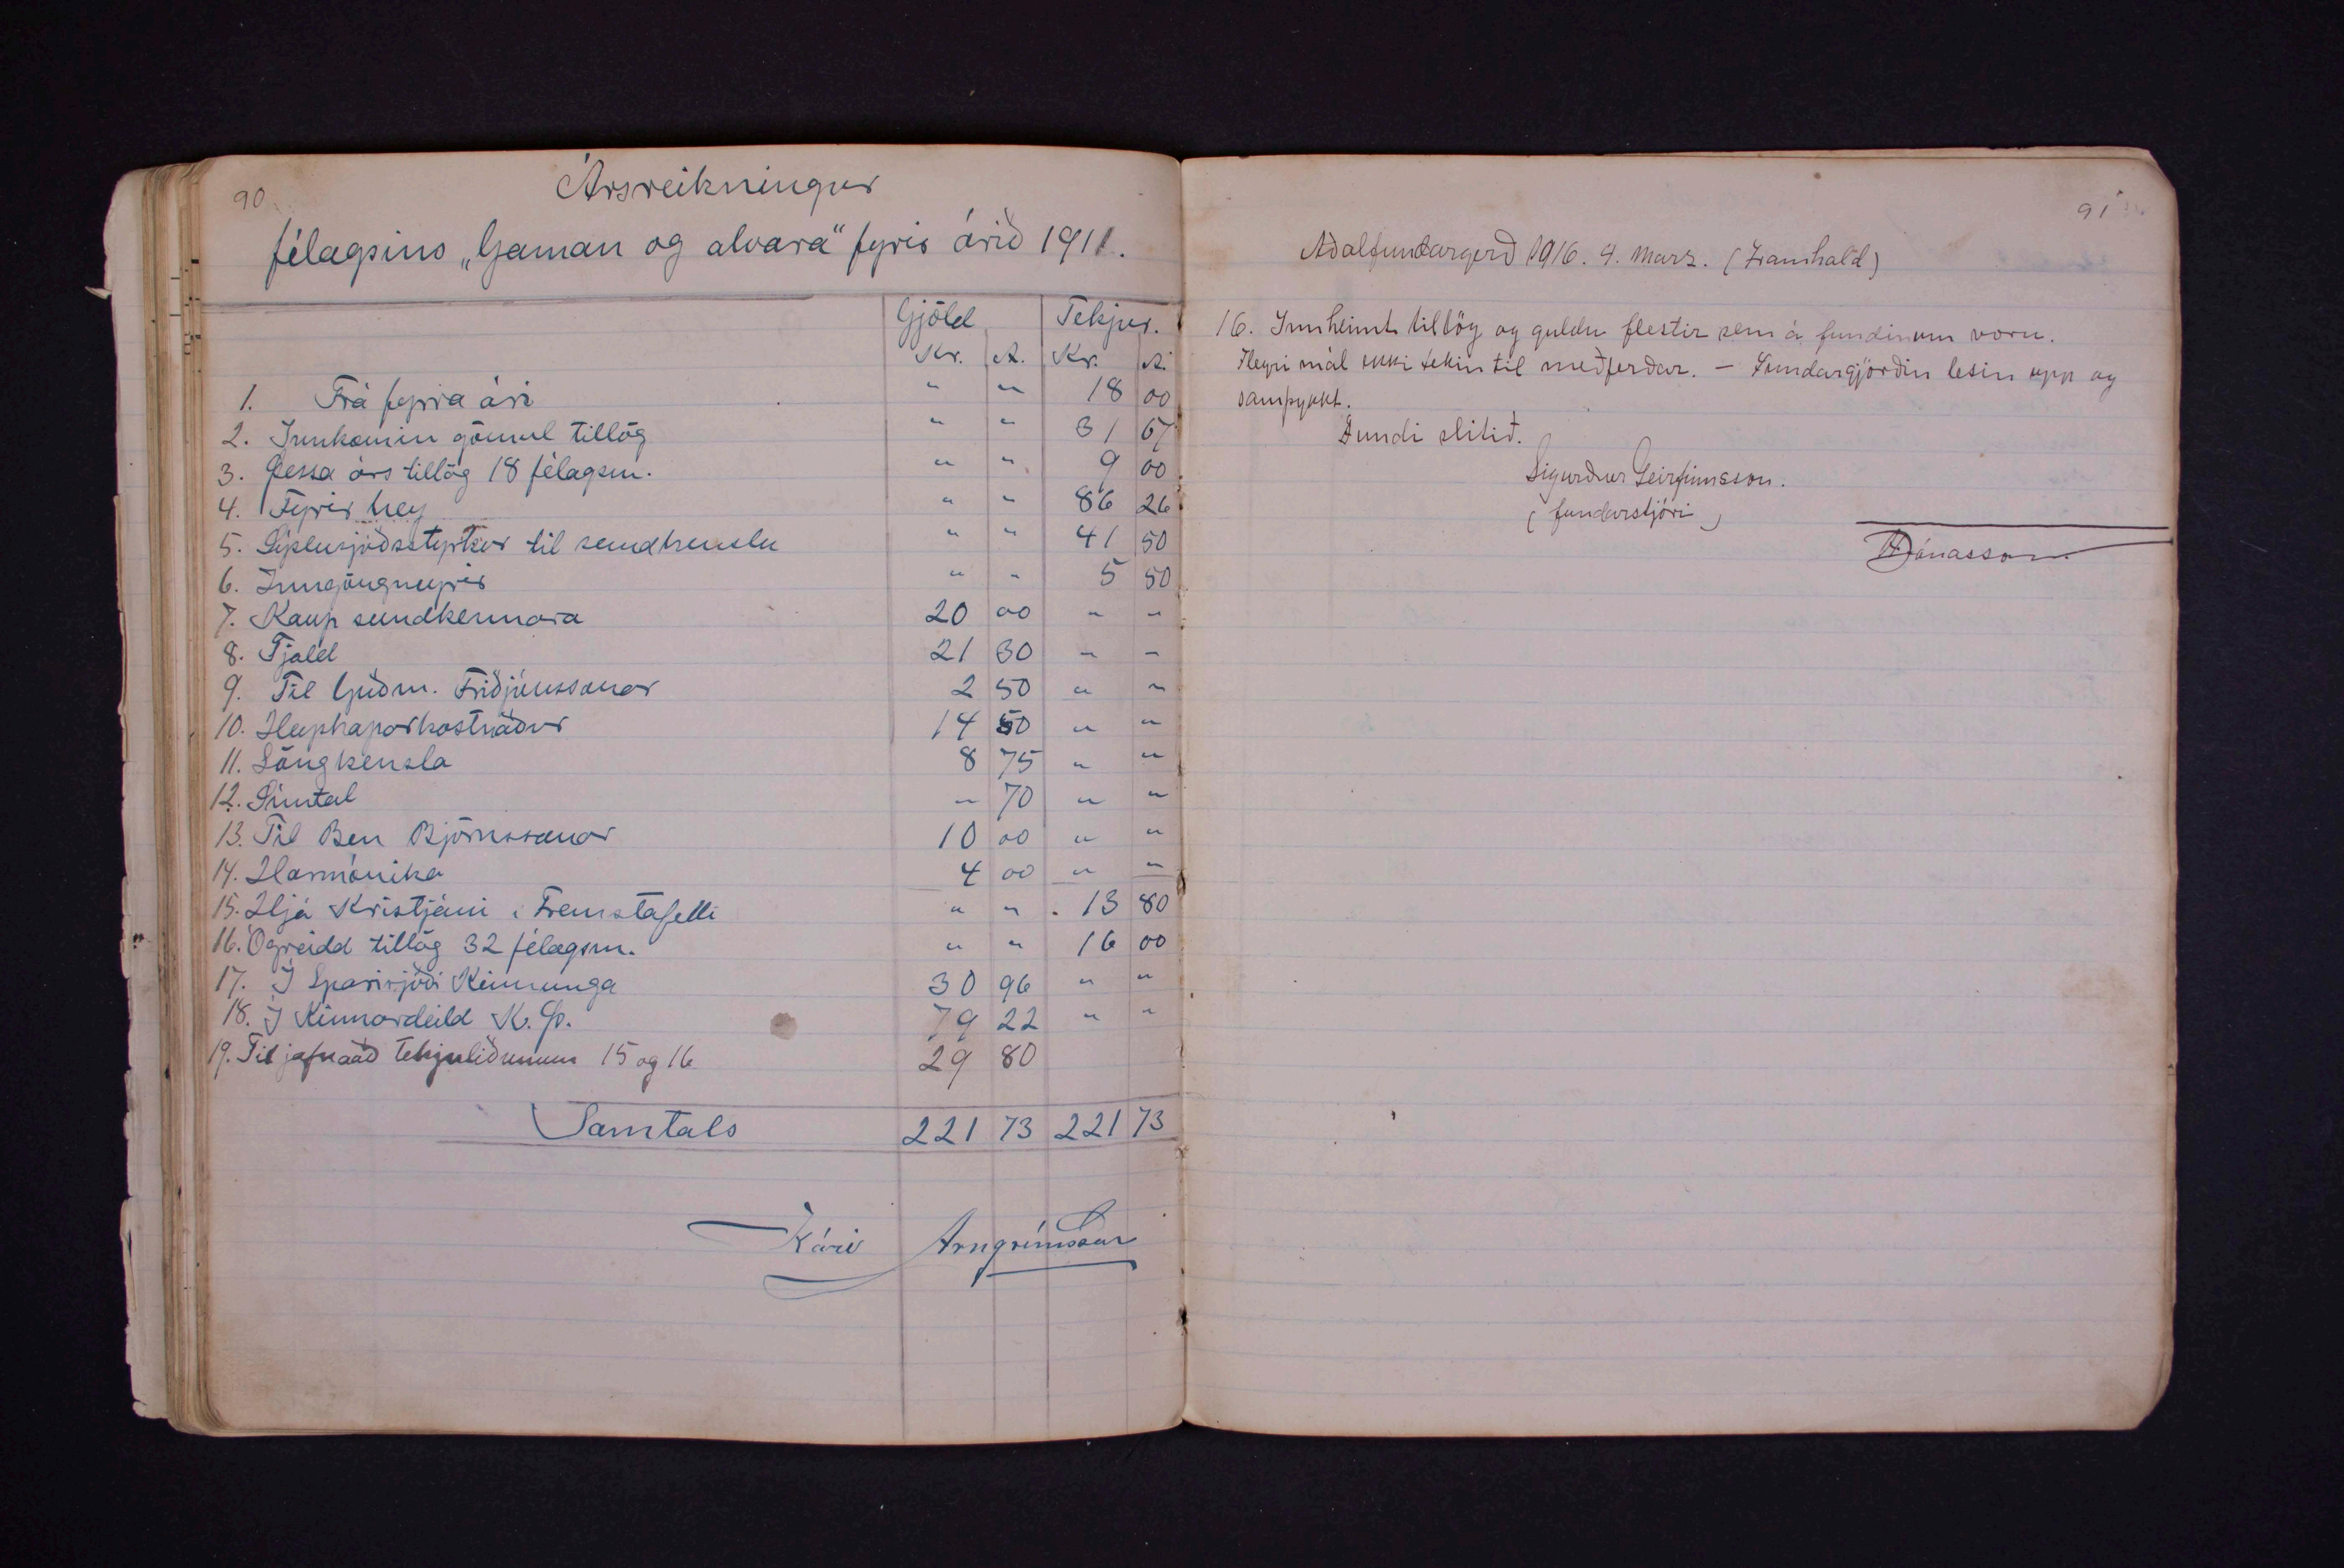 90
Ársreikningur
félagsins „Gaman og alvara" fyrir árið 1911.
Gjöld Tekjur.
Kr. A. Kr. A.
1. Frá fyrra ári " " 18 00
2. Innkomin gömul tillög " " 31 67
3. Þessa árs tillög 18 félagsm. " " 9 00
4. Fyrir hey " " 86 26
5. Sýslusjóðsstyrkur til sundkenslu " " 41 50
6. Inngöngueyrir " " 5 50
7. Kaup sundkennara 20 00 " "
8. Tjald 21 30 " "
9. Til Guðm. Friðjónssonar 2 50 " "
10. Heyskaparkostnaður 14 50 " "
11. Söngkensla 8 75 " "
12. Símtal " 70 " "
13. Til Ben Björnssonar 10 00 " "
14. Harmónika 4 00 " "
15. Hjá Kristjáni í Fremstafelli " " 13 80
16. Ógreidd tillög 32 félagsm. " " 16 00
17. Í Sparisjóði Kinnunga 30 96 " "
18. Í Kinnardeild K. Þ. 79 22 " "
19. Til jafnaðð tekjuliðunum 15 og 16 29 80
Samtals 221 73 221 73
Kári Arngrímsson
91
Aðalfundargerð 1916. 4. Marz. (Framhald)
16. Innheimt tillög og guldu flestir sem á fundinum voru.
Fleyri mál ekki tekin til meðferðar. — Fundargjörðin lesin upp og
samþykkt.
Fundi slitið.
Sigurður Geirfinnsson.
(fundarstjóri)
Jónasson.